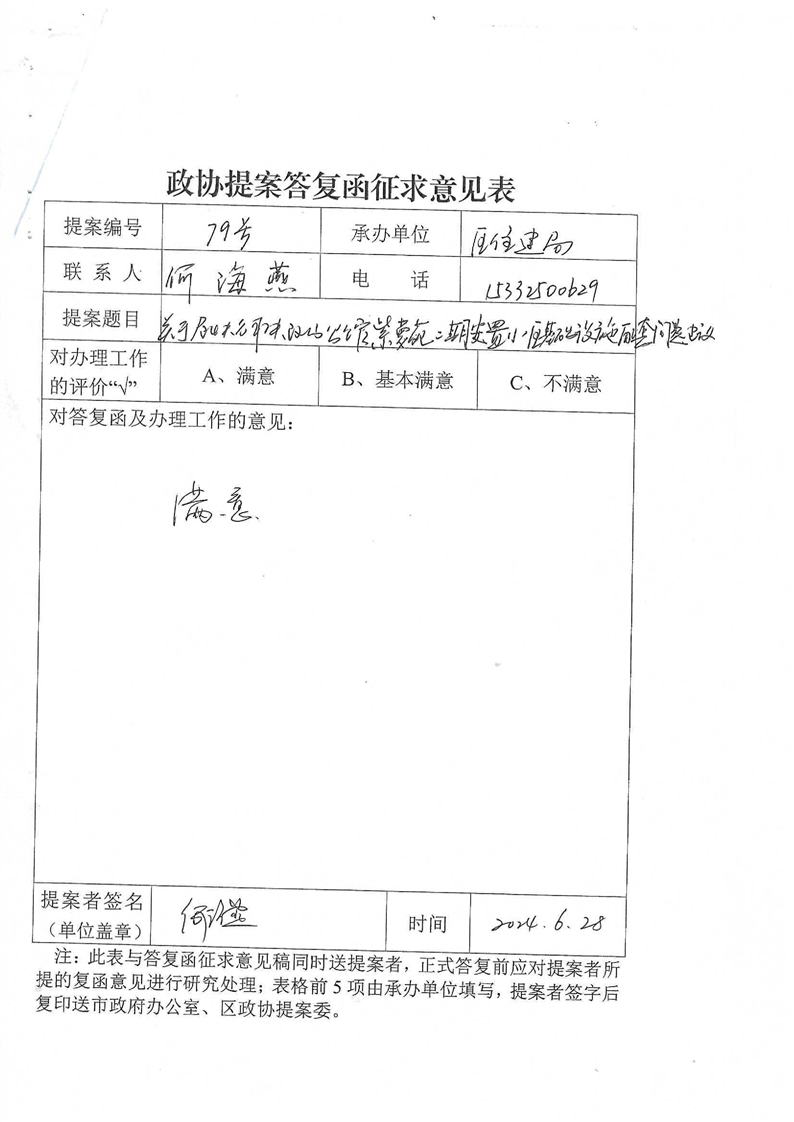 政协提案答复函征求意见表
提案编号 79号 承办单位 区住建局
联系人 何海燕 电话 15332500629
提案题目 关于 紫薇苑二期安置小区基础设施 问题 建议
对办理工作的评价“√” A、满意 B、基本满意 C、不满意
对答复函及办理工作的意见：
满意.
提案者签名（单位盖章） 何海燕 时间 2024.6.28
注：此表与答复函征求意见稿同时送提案者，正式答复前应对提案者所
提的复函意见进行研究处理；表格前5项由承办单位填写，提案者签字后
复印送市政府办公室、区政协提案委。